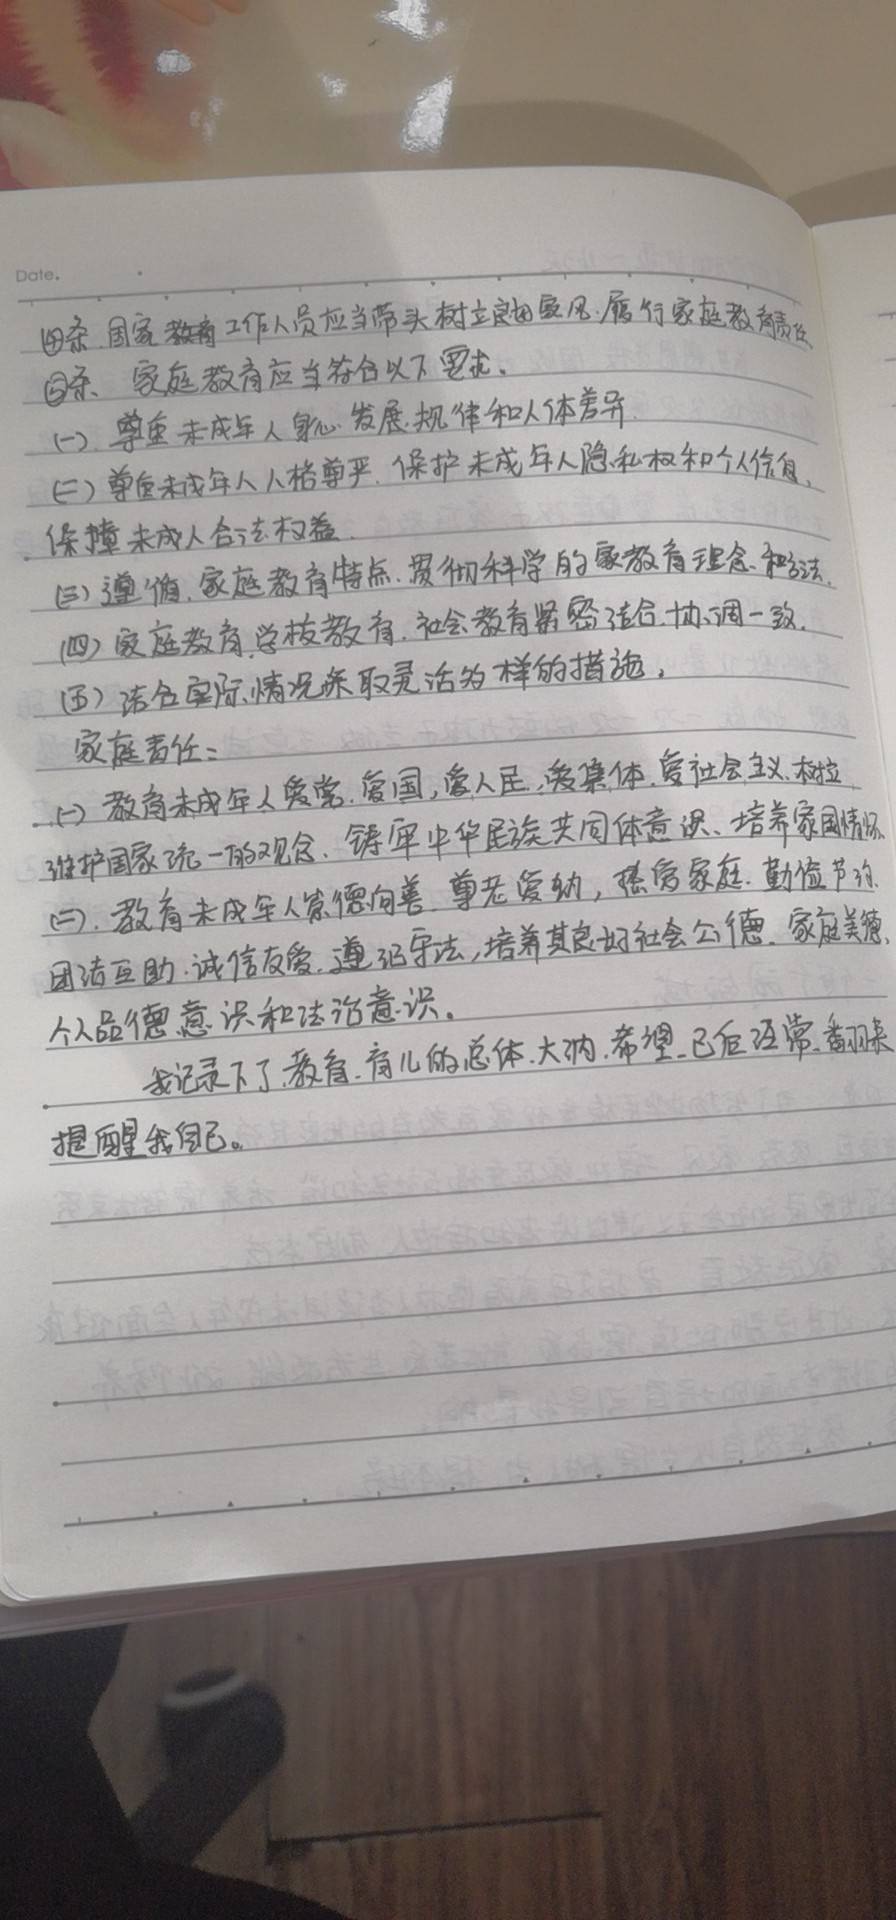 Date.
④条.国家教育工作人员应当带头树立良好家风.履行家庭教育责任.
⑤条、家庭教育应当符合以下要求。
(一)尊重未成年人身心发展.规律和人体差异.
(二)尊重未成年人人格尊严.保护未成年人隐私权和个人信息,
保障未成人合法权益.
(三)遵循.家庭教育特点.贯彻科学的家教育理念.和方法.
(四)家庭教育.学校教育.社会教育紧密结合.协调一致.
(五)结合实际.情况采取灵活多样的措施,
家庭责任:
(一)教育未成年人爱党.爱国,爱人民.,爱集体.爱社会主义.树立
维护国家统一的观念.铸牢中华民族共同体意识、培养家国情怀
(二).教育未成年人崇德向善.尊老爱幼,热爱家庭.勤俭节约.
团结互助.诚信友爱.遵纪守法,培养其良好社会公德.家庭美德、
个人品德意识和法治意识。
我记录下了.教育.育儿的总体.大纳.希望.已后经常.翻来
提醒我自己。